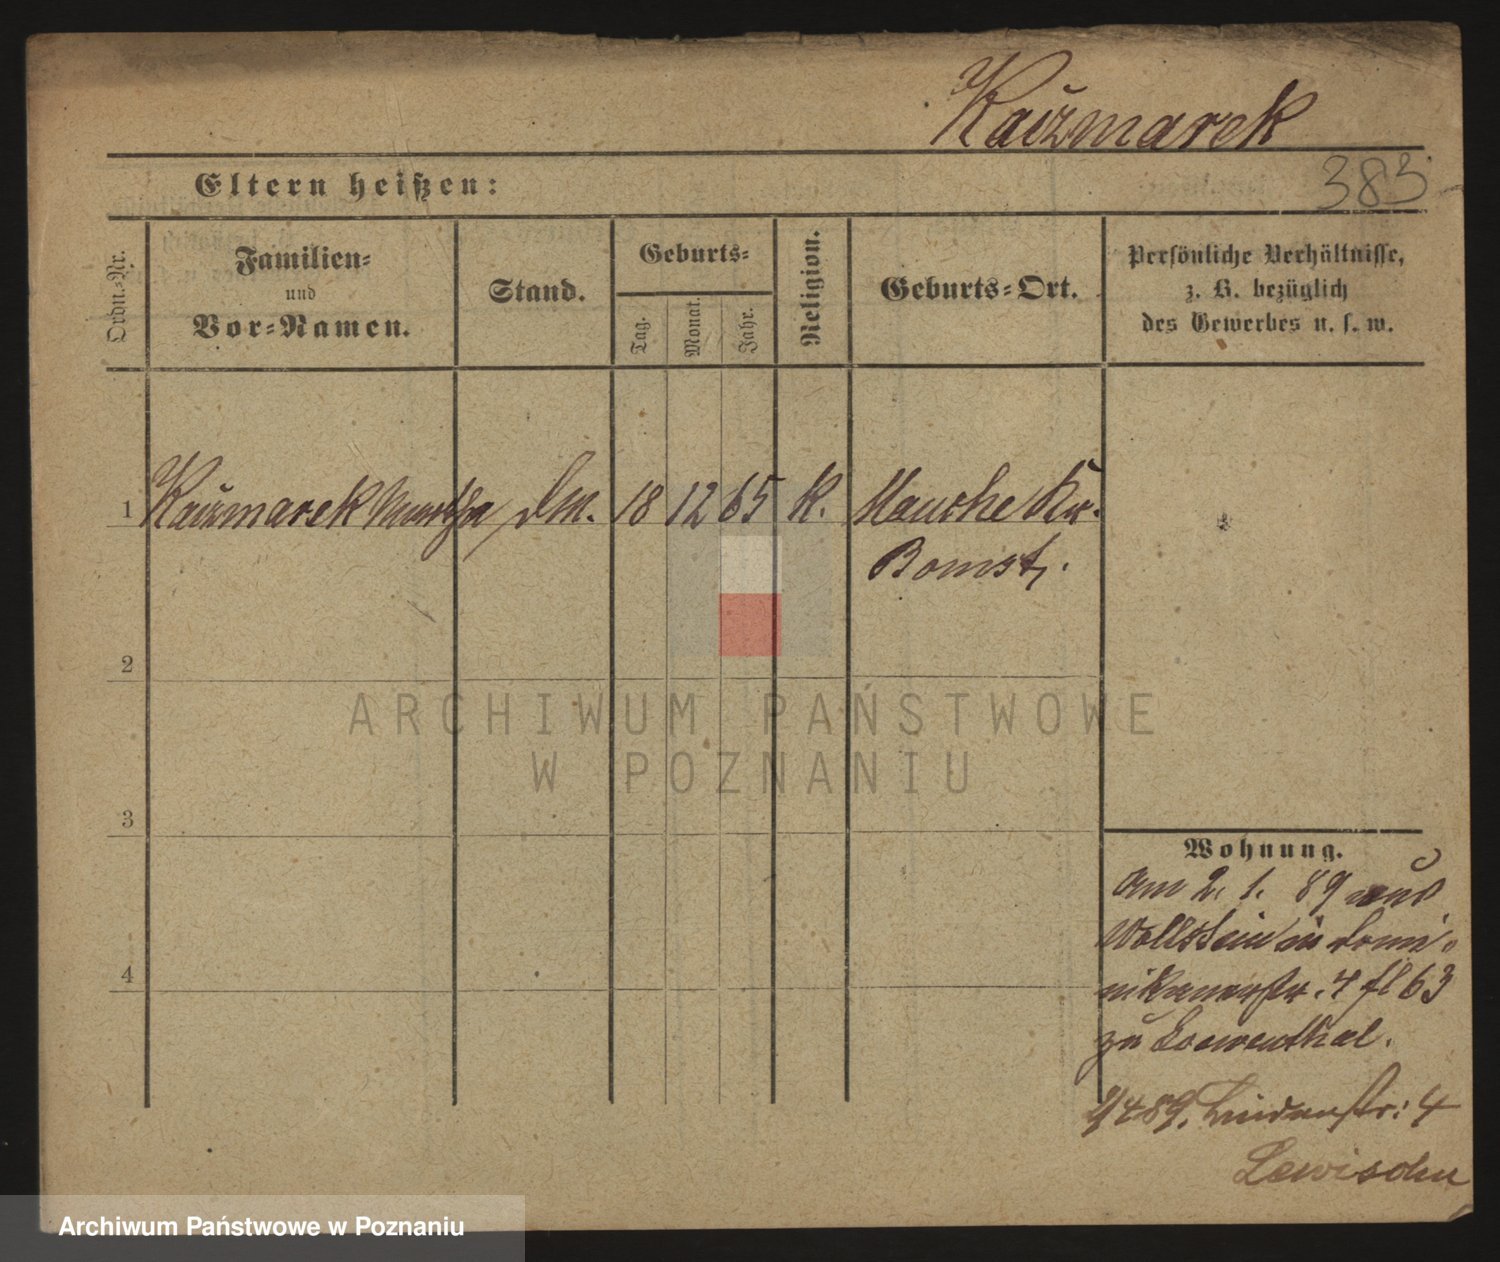 Kaczmarek
383
Eltern heißen:
Ordn.-Nr.
Familien-
und
Vor-Namen.
Stand.
Geburts-
Tag.
Monat.
Jahr.
Religion.
Geburts-Ort.
Persönliche Verhältnisse,
z. B. bezüglich
des Gewerbes u. s. w.
1 Kaczmarek Martha DM. 18 12 65 K. Mauche Kr.
Bomst.
2
3
4
Wohnung.
am 2. 1. 89 aus
Wollstein in Domi-
nikanerstr. 4 fl 63
zu Loewenthal.
2/4 89. Lindenstr: 4
Lewisohn
ARCHIWUM PAŃSTWOWE
W POZNANIU
Archiwum Państwowe w Poznaniu